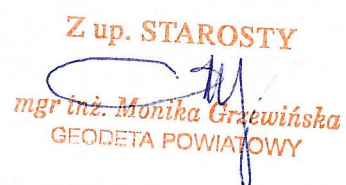 Z up. STAROSTY
mgr inż. Monika Grzewińska
GEODETA POWIATOWY